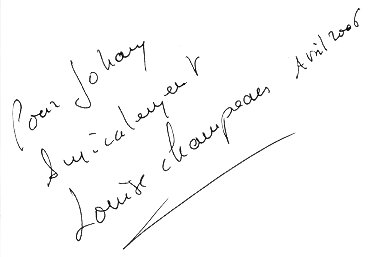 Pour Johan
Amicalement
Louise Champeau Avril 2006